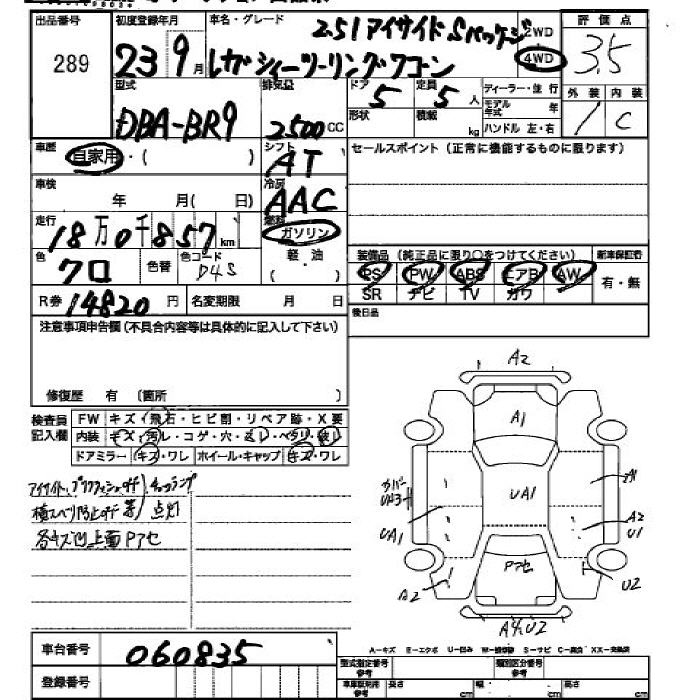 出品番号 初度登録年月 車名・グレード 2WD 評価点
289 23 9月 2.5i アイサイト Sパッケージ 4WD 3.5
レガシィツーリングワゴン
型式 排気量 ドア 定員 ディーラー・並行 外装 内装
DBA-BR9 2500CC 5 5人 モデル年式 年 / C
形状 積載 kg ハンドル 左・右
車歴 シフト セールスポイント(正常に機能するものに限ります)
自家用・( ) AT
車検 冷房
年 月( 日) AAC
走行 燃料
18万0千857km ガソリン
色 クロ 色替 色コード D4S 軽・油
( )
装備品 (純正品に限り○をつけてください) 新車保証書
PS PW ABS エアB AW 有・無
SR ナビ TV カワ
R券 14820円 名変期限 月 日 後日品
注意事項申告欄(不具合内容等は具体的に記入して下さい)
修復歴 有 (箇所 )
検査員記入欄 FW キズ・飛石・ヒビ割・リペア跡・X要
内装 キズ・汚レ・コゲ・穴・
ドアミラー キズ・ワレ ホイール・キャップ キズ・ワレ
アイサイト、プリクラッシュoff
横スベリ防止off 等 点灯
各キズ凹 上面Pアセ
A2
A1
A1
UA1
カバー
UA1
A2
U1
Pアセ
A2
U2
A4U2
車台番号 060835
A-キズ E-エクボ U-凹み W-補修跡 S-サビ C-腐食 XX-交換済
登録番号
型式指定番号 参考 類別区分番号 参考
車庫証明用 参考 長さ cm 幅 cm 高さ cm